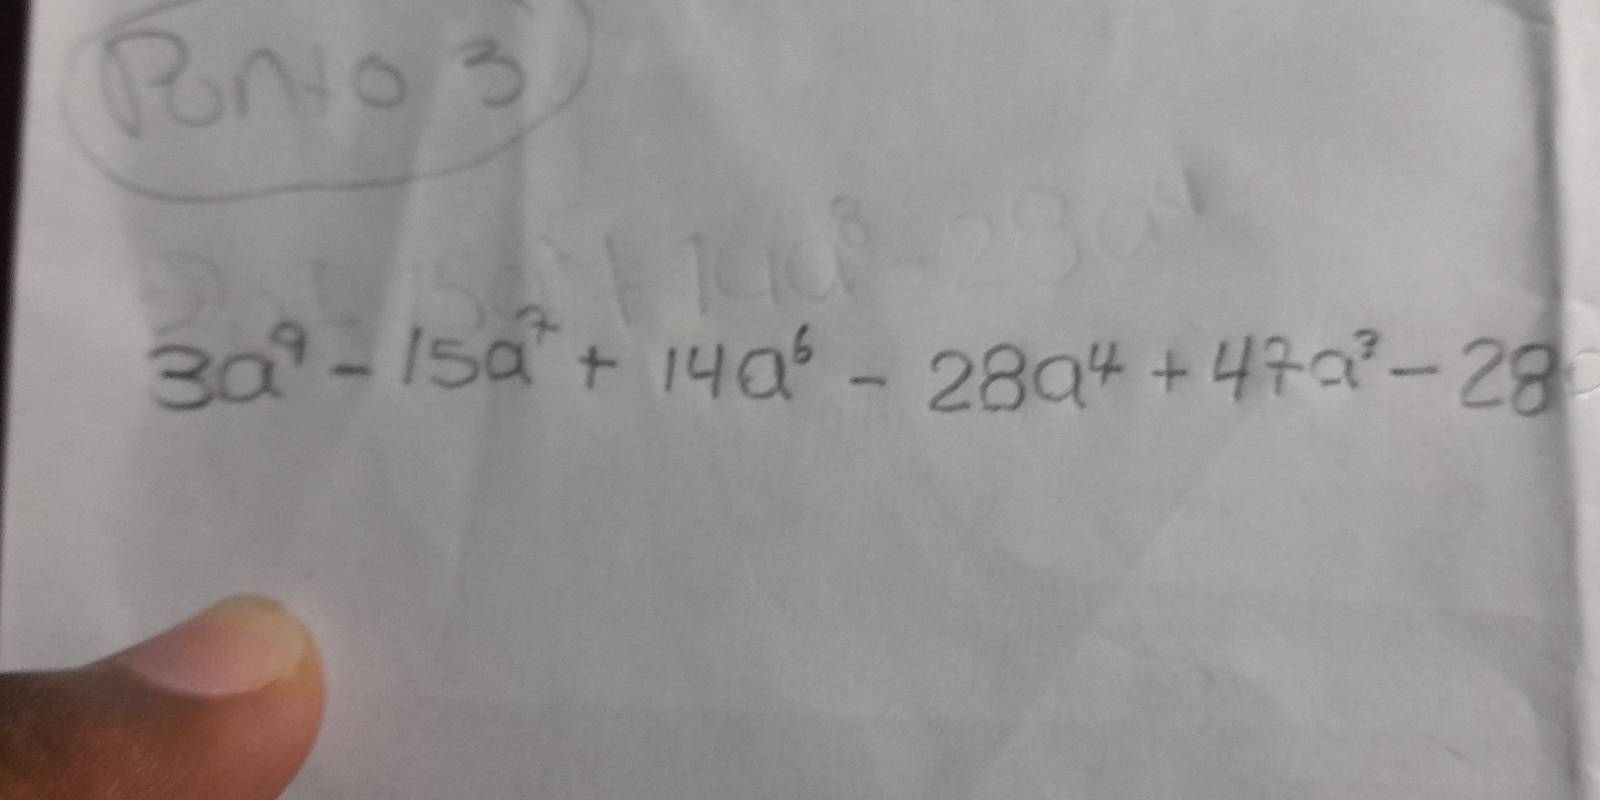 Punto 3
3a⁹ - 15a⁷ + 14a⁶ - 28a⁴ + 47a³ - 28